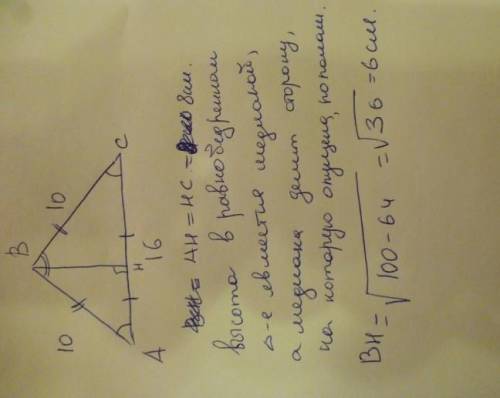 B
10
10
A
C
H
16
AH = HC = 8 см.
высота в равнобедренном
Δ-е является медианой,
а медиана делит сторону,
на которую опущена, пополам.
BH = √100 - 64 = √36 = 6 см.